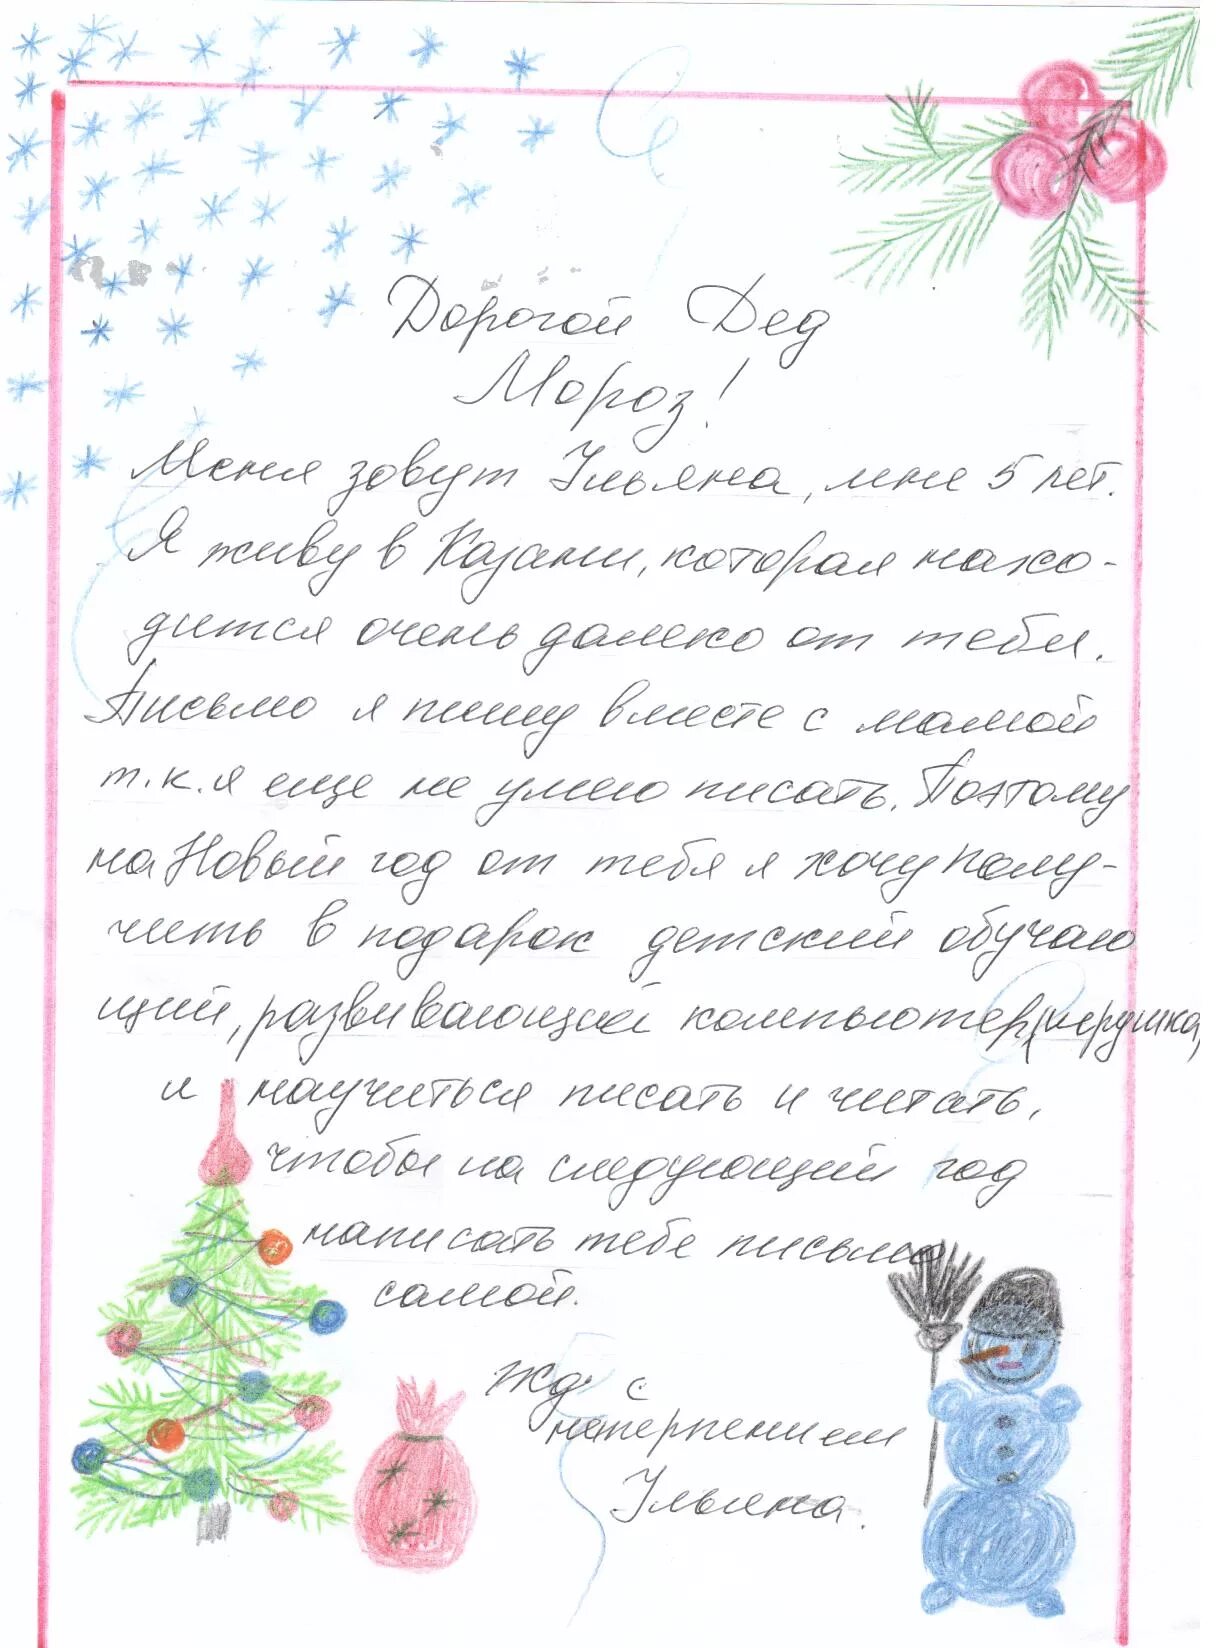 Дорогой Дед
Мороз!
Меня зовут Ульяна, мне 5 лет.
Я живу в Казани, которая нахо-
дится очень далеко от тебя.
Письмо я пишу вместе с мамой
т.к. я еще не умею писать. Поэтому
на Новый год от тебя я хочу полу-
чить в подарок детский обучаю
щий, развивающий компьютер (игрушка)
и научиться писать и читать,
чтобы на следующий год
написать тебе письмо
самой.
Жду с
нетерпением
Ульяна.